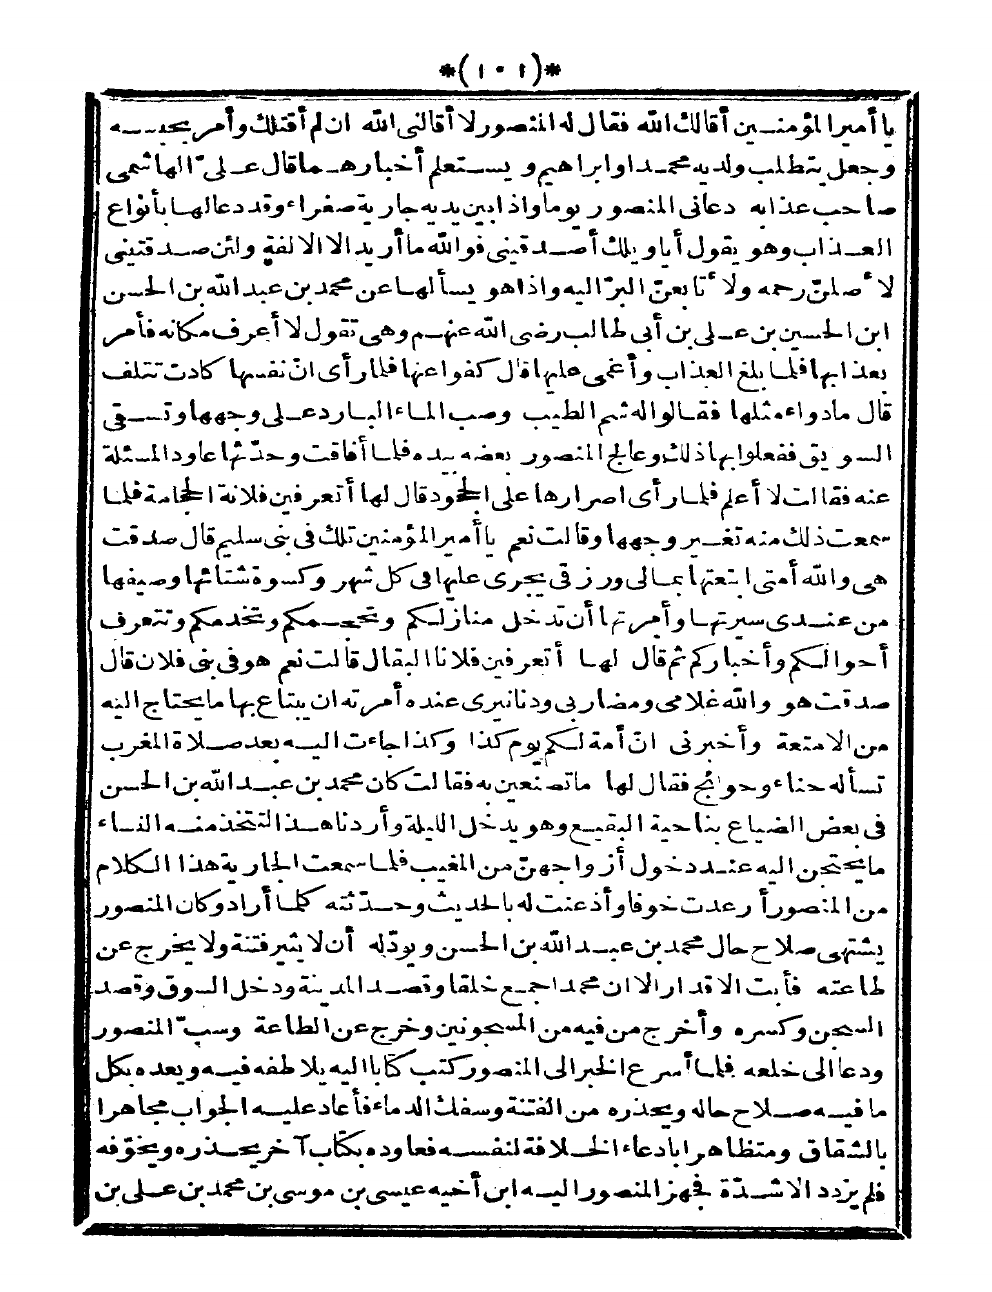 *(١٠١)*
يا أمير المؤمنين أقالك الله فقال له المنصور لا أقالني الله ان لم أقتلك وأمر بحبسه
وجعل يتطلب ولديه محمدا وابراهيم ويستعلم أخبارهما قال على الهاشمى
صاحب عذابه دعانى المنصور يوما واذا بين يديه جارية صفراء وقد دعا لها بأنواع
العذاب وهو يقول أيا ويلك أصدقينى فوالله ما أريد الا الالفة ولئن صدقتينى
لأصلنّ رحمه ولأتابعنّ البرّ اليه واذا هو يسألها عن محمد بن عبد الله بن الحسن
ابن الحسين بن على بن أبى طالب رضى الله عنهم وهى تقول لا أعرف مكانه فأمر
بعذابها فلما بلغ العذاب وأغمى عليها قال كفوا عنها فلما رأى انّ نفسها كادت تتلف
قال ما دواء مثلها فقالوا له شم الطيب وصب الماء البارد على وجهها وتسقى
السويق ففعلوا بها ذلك وعالج المنصور بعضه بيده فلما أفاقت وحدّثها عاود المسئلة
عنه فقالت لا أعلم فلما رأى اصرارها على الجحود قال لها أتعرفين فلانة الحجامة فلما
سمعت ذلك منه تغير وجهها وقالت نعم يا أمير المؤمنين تلك فى بنى سليم قال صدقت
هى والله أمتى ابتعتها بمالى ورزقى يجرى عليها فى كل شهر وكسوة شتائها وصيفها
من عندى سيرتها وأمرتها أن تدخل منازلكم وتحجمكم وتخدمكم وتتعرف
أحوالكم وأخباركم ثم قال لها أتعرفين فلانا البقال قالت نعم هو فى بنى فلان قال
صدقت هو والله غلامى ومضاربى ودنانيرى عنده أمرته ان يبتاع بها ما يحتاج اليه
من الامتعة وأخبرنى انّ أمة لكم يوم كذا وكذا جاءت اليه بعد صلاة المغرب
تسأله حناء وحوائج فقال لها ما تصنعين به فقالت كان محمد بن عبد الله بن الحسن
فى بعض الضياع بناحية البقيع وهو يدخل الليلة وأردنا هذا التتخذ منه النساء
ما يحتجن اليه عند دخول أزواجهنّ من المغيب فلما سمعت الجارية هذا الكلام
من المنصور أرعدت خوفا وأذعنت له بالحديث وحدّثته كلما أراد وكان المنصور
يشتهى صلاح حال محمد بن عبد الله بن الحسن ويودّ له أن لا يثير فتنة ولا يخرج عن
طاعته فأبت الاقدار الا ان محمدا جمع خلقا وقصد المدينة ودخل السوق وقصد
السجن وكسره وأخرج من فيه من المسجونين وخرج عن الطاعة وسبّ المنصور
ودعا الى خلعه فلما أسرع الخبر الى المنصور كتب كتابا اليه يلاطفه فيه ويعده بكل
ما فيه صلاح حاله ويحذره من الفتنة وسفك الدماء فأعاد عليه الجواب مجاهرا
بالشقاق ومتظاهرا بادعاء الخلافة لنفسه فعاوده بكتاب آخر يحذره ويخوّفه
فلم يزدد الا شدّة فجهز المنصور اليه ابن أخيه عيسى بن موسى بن محمد بن على بن